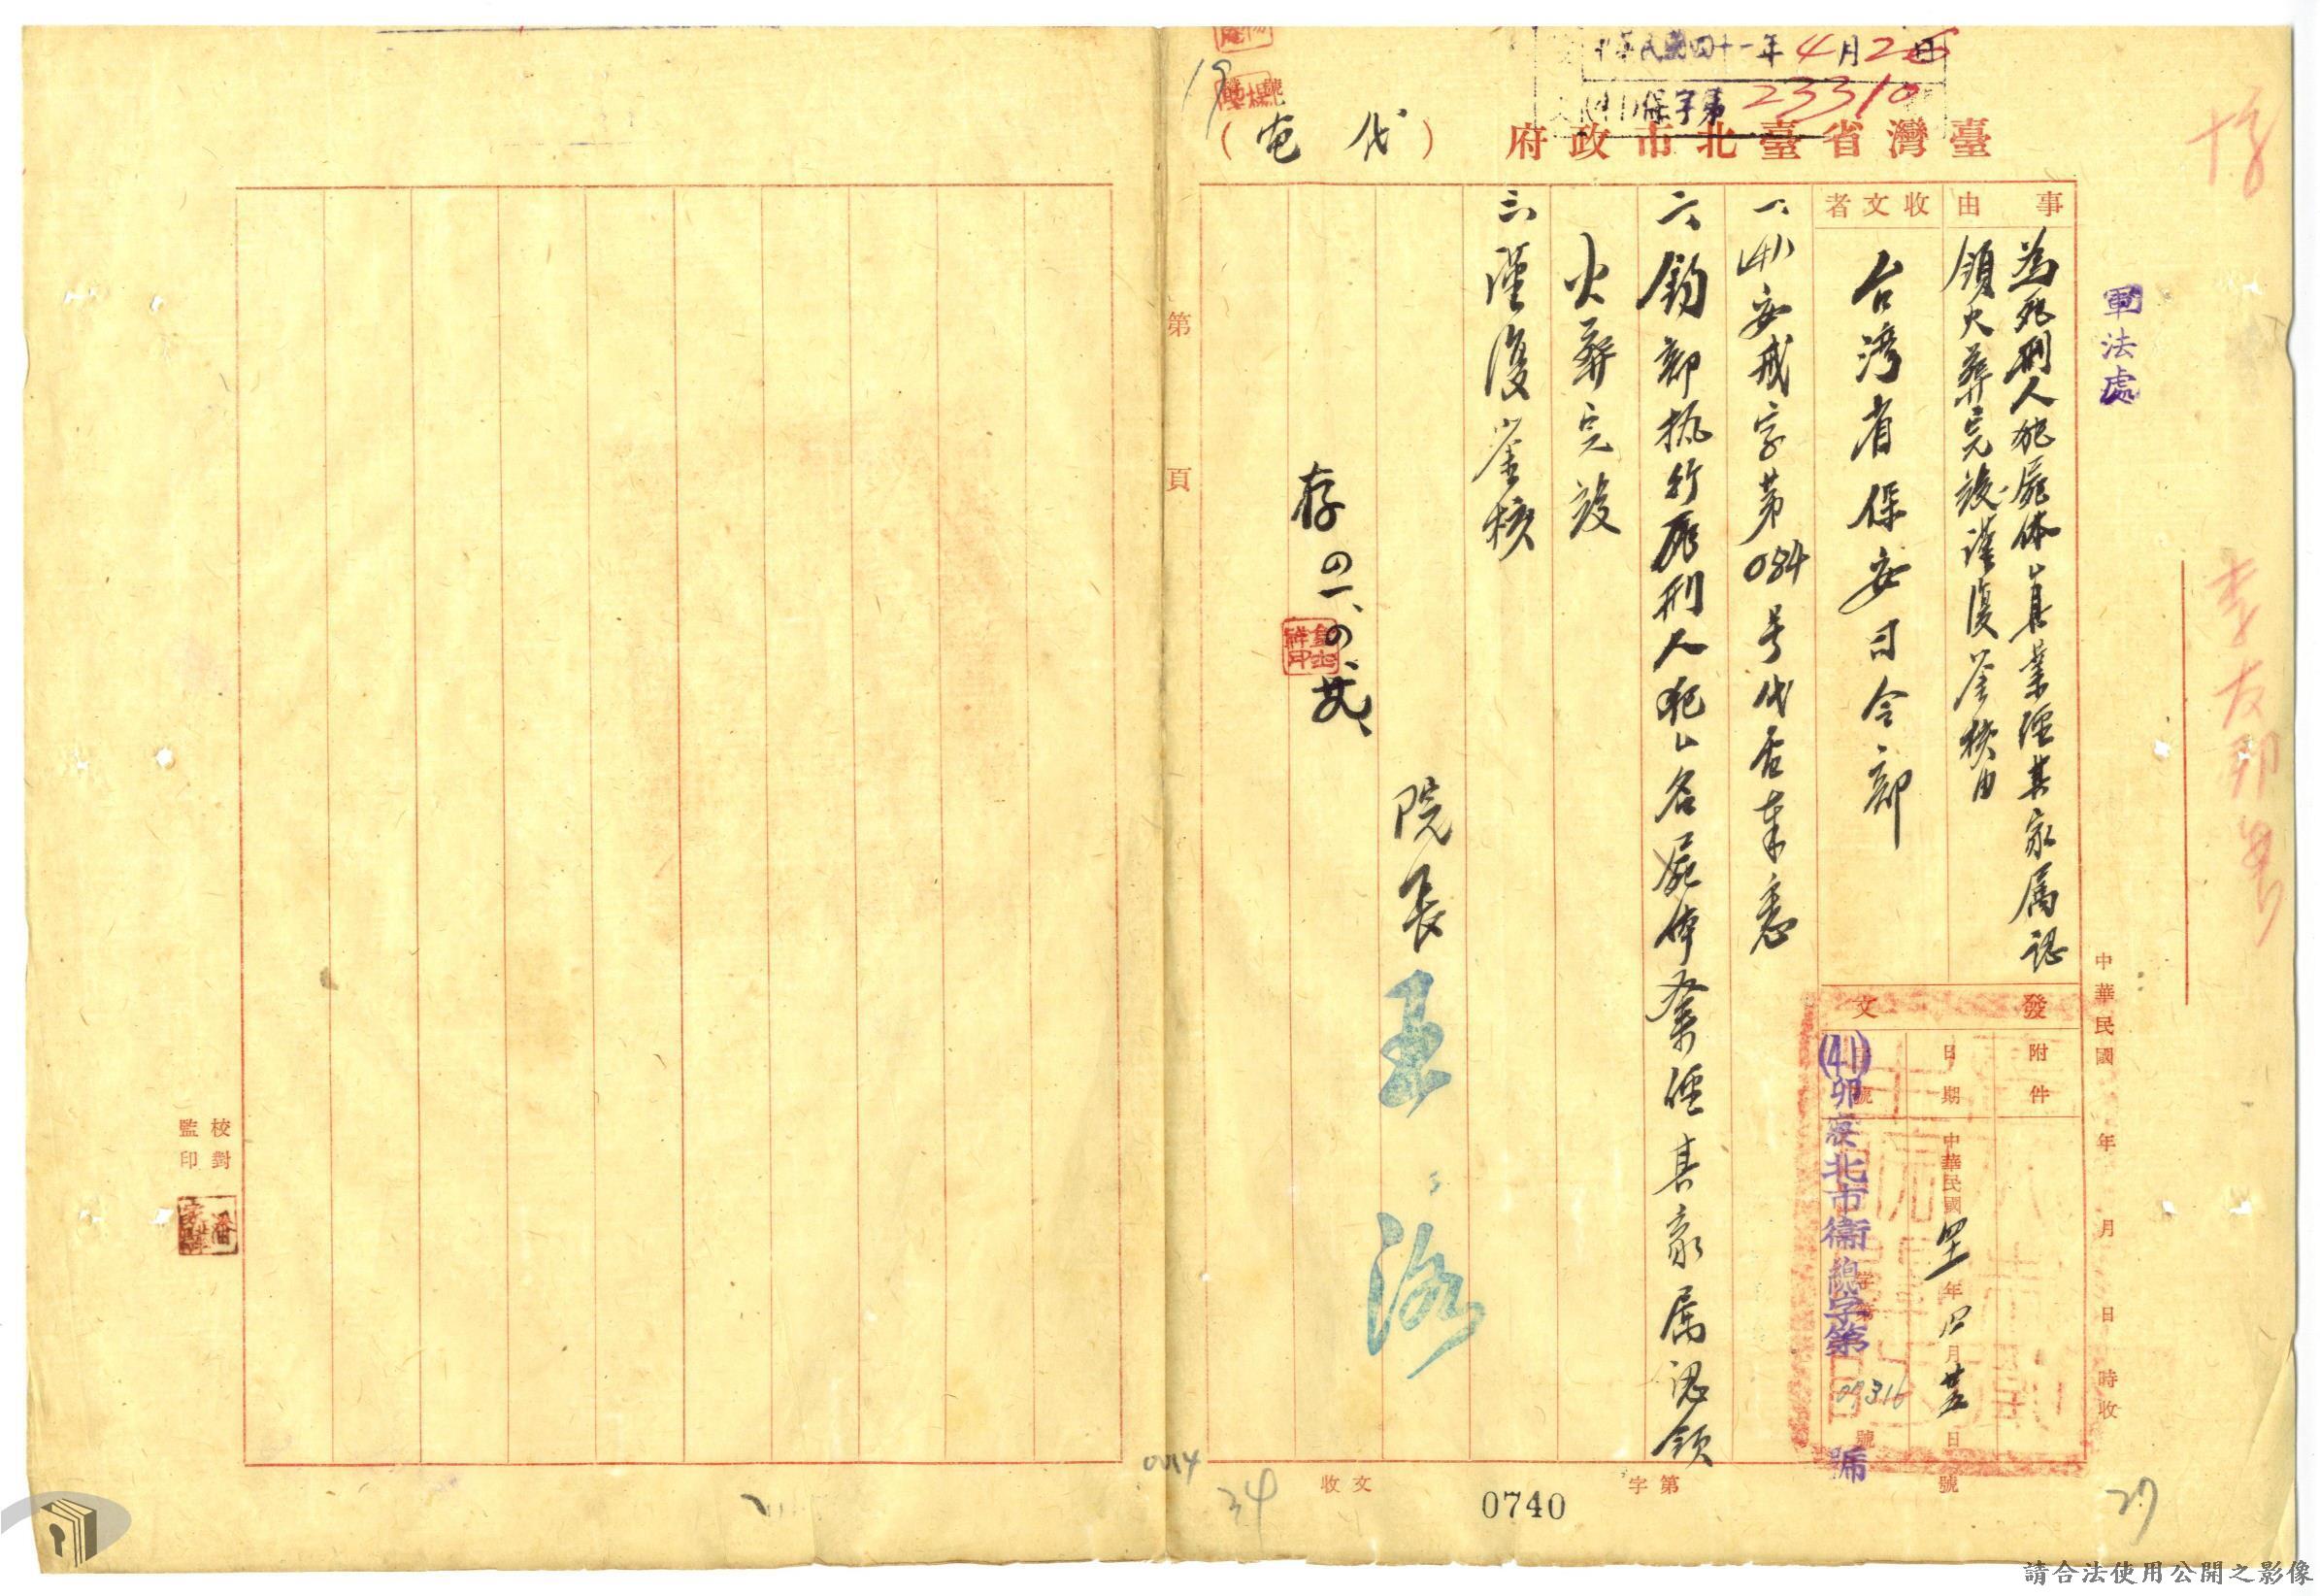 中華民國四十一年4月26日
(41)保字第23310
臺灣省臺北市政府（代電）
軍法處
事由
為死刑人犯屍体山具業經其家属認
領火葬完竣謹復鉴核由
收文者
台湾省保安司令部
發文
附件
日期
中華民國四十一年四月廿五日
(41)卯
北市衞總字第09316號
一、(41)安戒字第084号代电奉悉
二、鈞部执行死刑人犯山名屍体業經其家属認領
火葬完竣
三、謹復鉴核
院長王
存
四一、四、
中華民國 年 月 日 時收
第 頁
校對
監印
收文 字第 號
0740
0014
34
27
19
李友邦案
請合法使用公開之影像